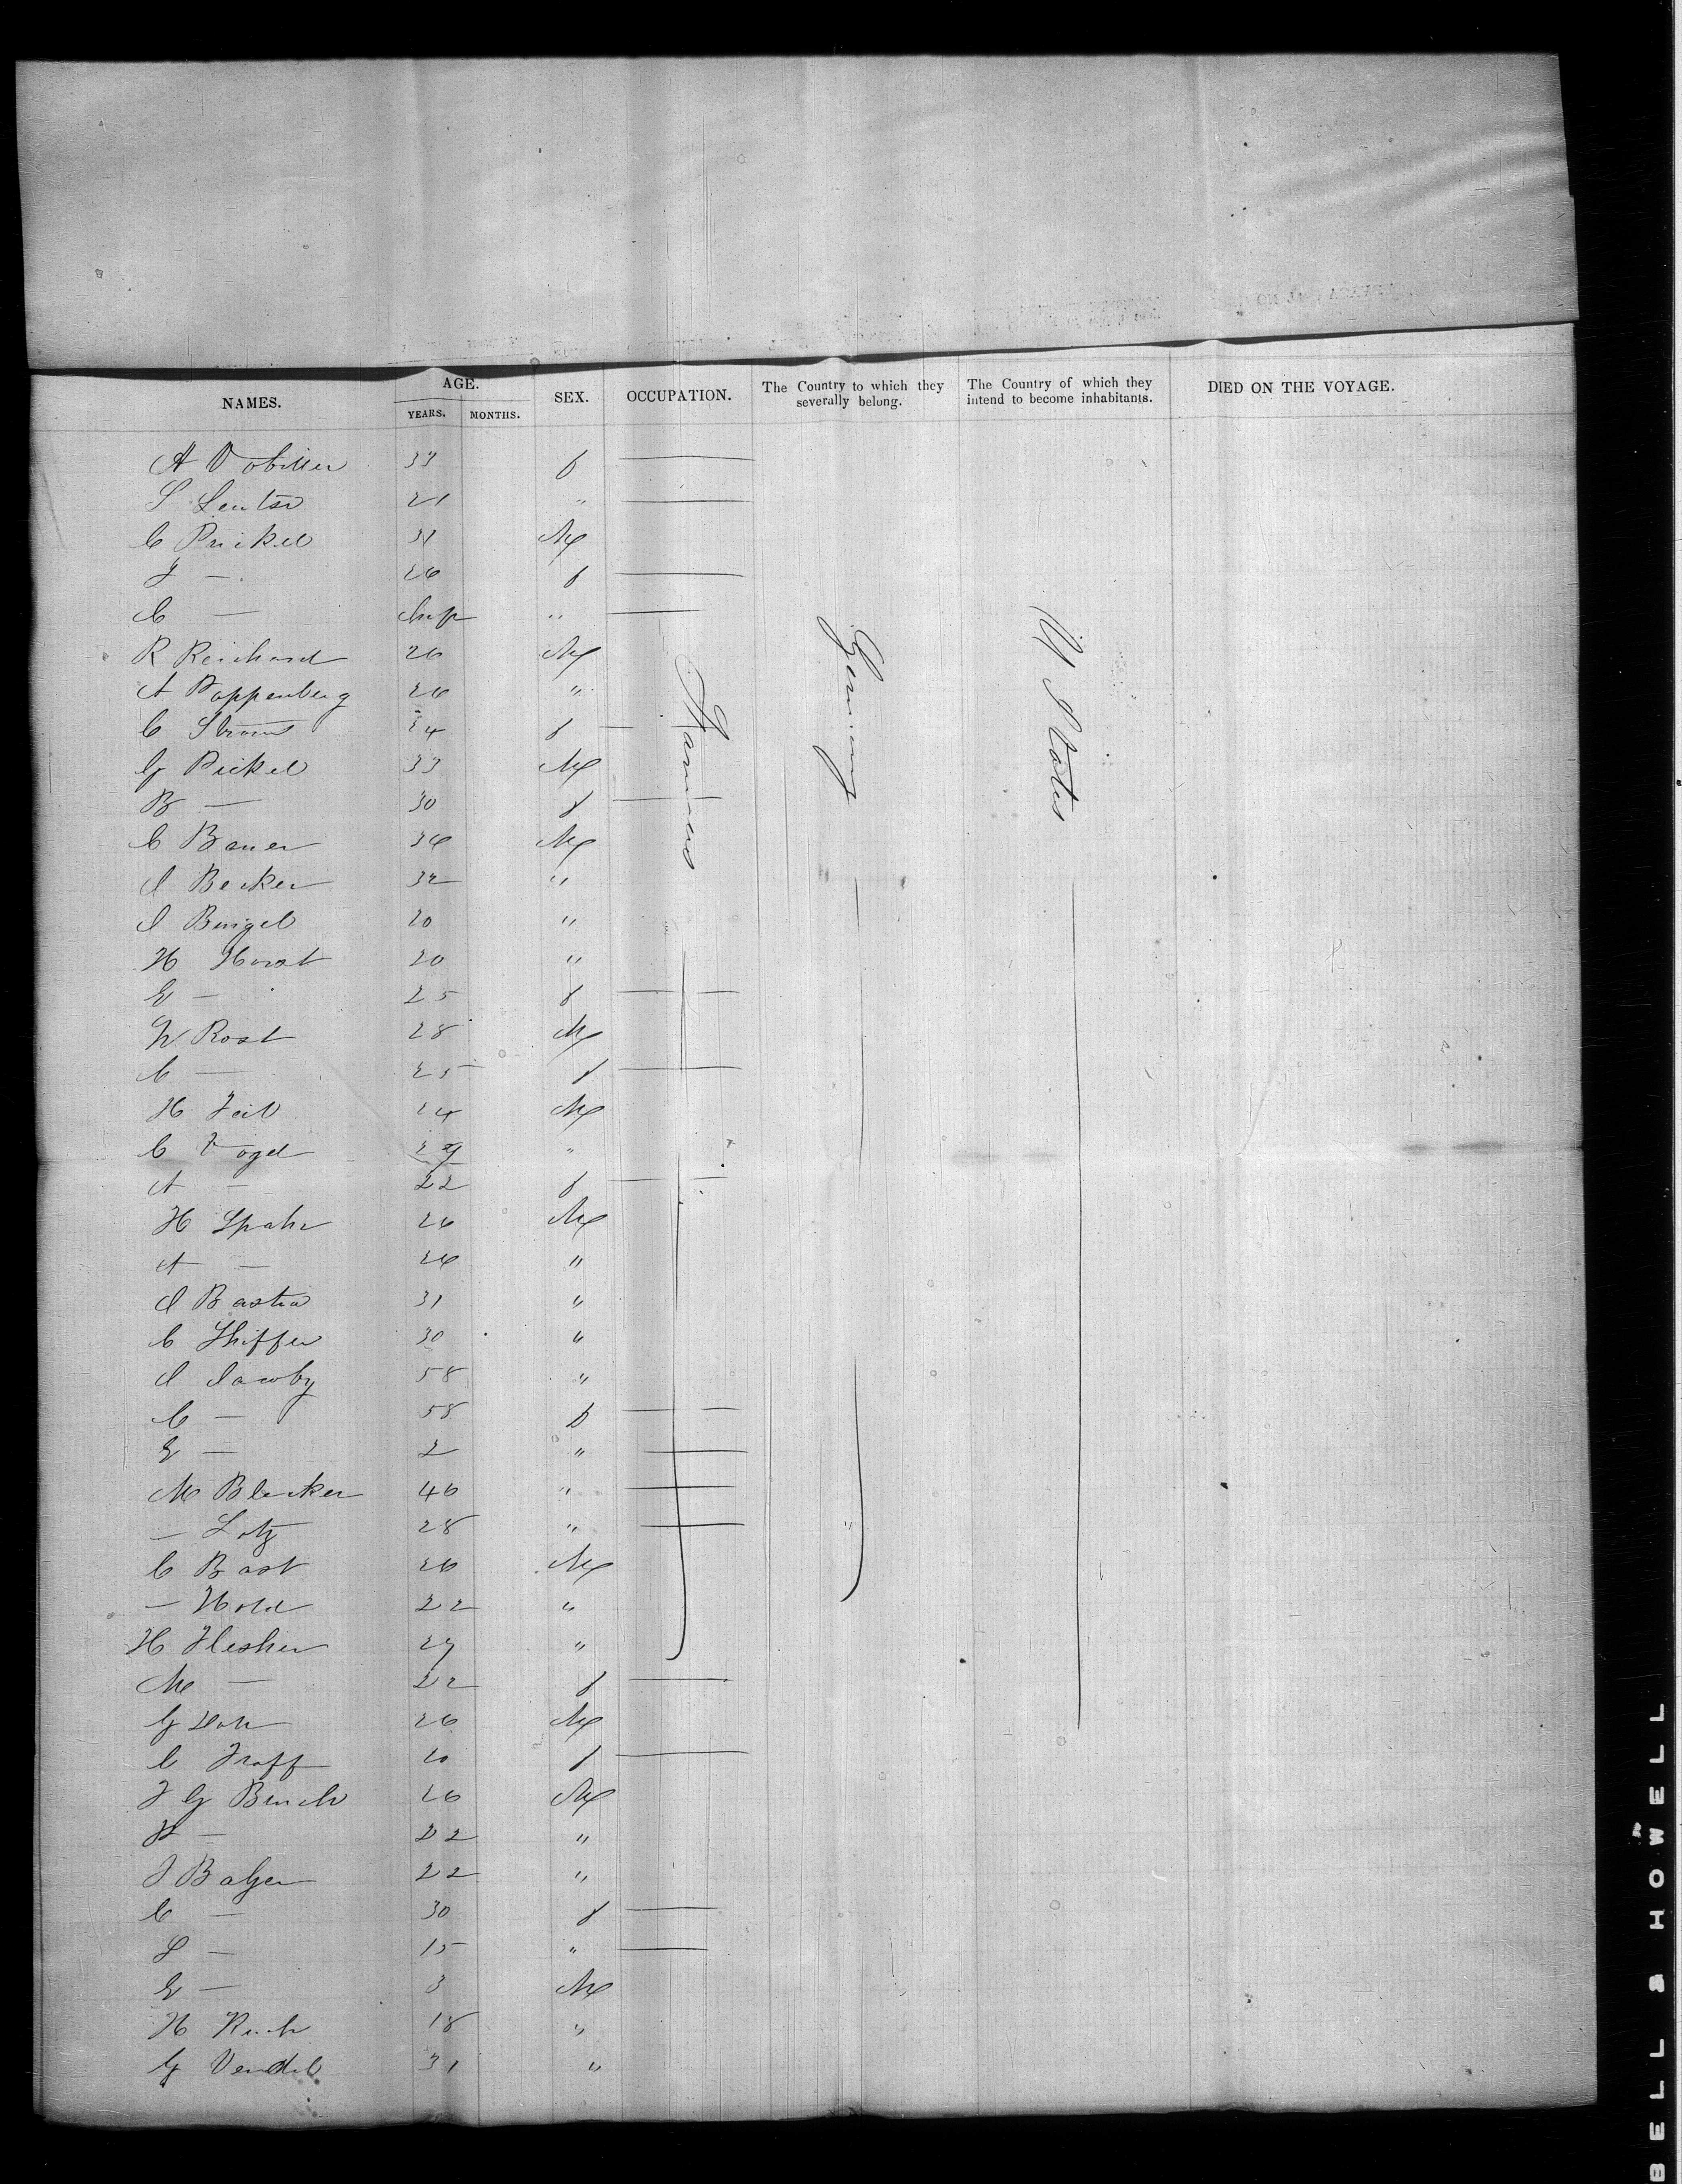 NAMES. AGE. SEX. OCCUPATION. The Country to which they severally belong. The Country of which they intend to become inhabitants. DIED ON THE VOYAGE.
YEARS. MONTHS.
A 33 f —
S 21 " —
C Prickel 31 M
— 26 f —
C — "  —
R Reichard 26 M
A Poppenberg 26 "
C f —
G Pickel 33 M
B — 30 f —
C Bauer 36 M
J Becker 32 "
J Bengel 20 "
H Horst 20 "
E — 25 f —
W Rost 28 M
C — 25 f —
H Feil 24 M
C Vogel "
A — 22 f —
H Spahr 26 M
A — 26 "
J 31 "
C Shiffer 30 "
J Jacoby 58 "
C — 58 f —
E — 2 " —
M Blecker 46 " —
— Lotz 28 " — "
C Bast 26 M
— Hold 22 "
H Flesher 27 "
M — 22 f —
G 26 M
C Traff 20 f —
J G 26 M
— 22 "
J Balzer 22 "
C — 30 f —
S — 15 " —
E — 3 M
H 18 "
G Vendel 31 "
Farmers
Germany
U States
BELL & HOWELL